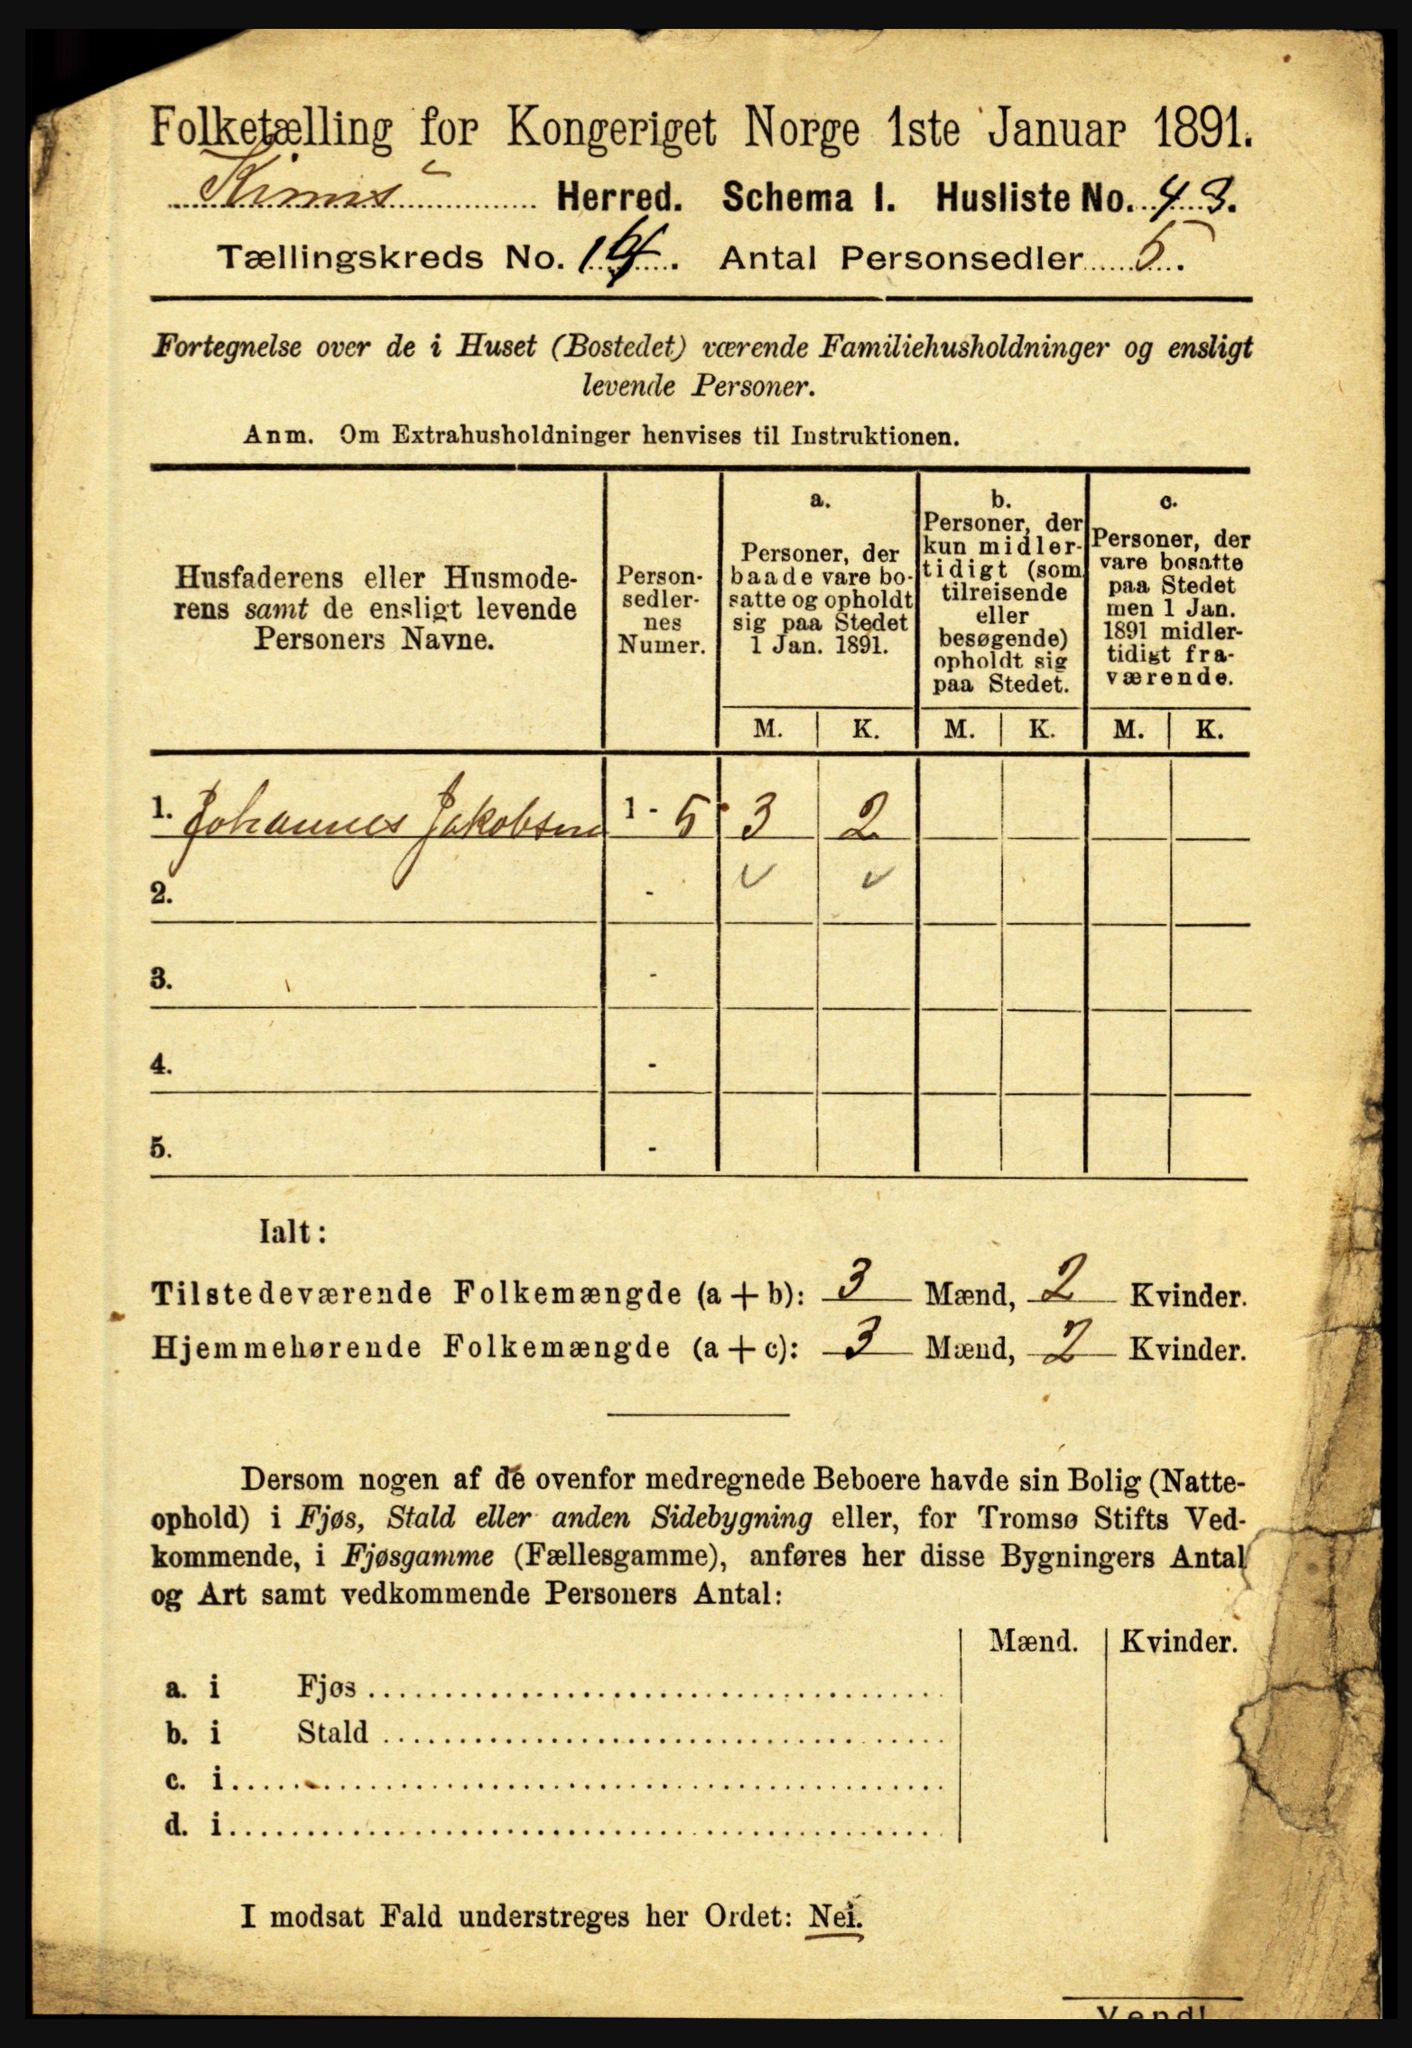 Folketælling for Kongeriget Norge 1ste Januar 1891.
Kinns Herred. Schema I. Husliste No. 43.
Tællingskreds No. 1 . Antal Personsedler 5.
Fortegnelse over de i Huset (Bostedet) værende Familiehusholdninger og ensligt
levende Personer.
Anm. Om Extrahusholdninger henvises til Instruktionen.
Husfaderens eller Husmode-
rens samt de ensligt levende
Personers Navne.
Person-
sedler-
nes
Numer.
a.
Personer, der
baade vare bo-
satte og opholdt
sig paa Stedet
1 Jan. 1891.
b.
Personer, der
kun midler-
tidigt (som
tilreisende
eller
besøgende)
opholdt sig
paa Stedet.
c.
Personer, der
vare bosatte
paa Stedet
men 1 Jan.
1891 midler-
tidigt fra-
værende.
M. K. M. K. M. K.
1. Johannes Jakobsen 1 - 5 3 2
2. -
3. -
4. -
5. -
Ialt:
Tilstedeværende Folkemængde (a + b): 3 Mænd, 2 Kvinder.
Hjemmehørende Folkemængde (a + c): 3 Mænd, 2 Kvinder.
Dersom nogen af de ovenfor medregnede Beboere havde sin Bolig (Natte-
ophold) i Fjøs, Stald eller anden Sidebygning eller, for Tromsø Stifts Ved-
kommende, i Fjøsgamme (Fællesgamme), anføres her disse Bygningers Antal
og Art samt vedkommende Personers Antal:
Mænd. Kvinder.
a. i Fjøs
b. i Stald
c. i
d. i
I modsat Fald understreges her Ordet: Nei.
Vend!